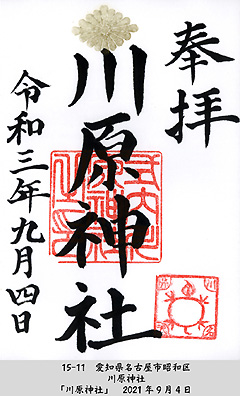 奉拝
川原神社
令和三年九月四日
15-11 愛知県名古屋市昭和区
川原神社
「川原神社」 2021年9月4日